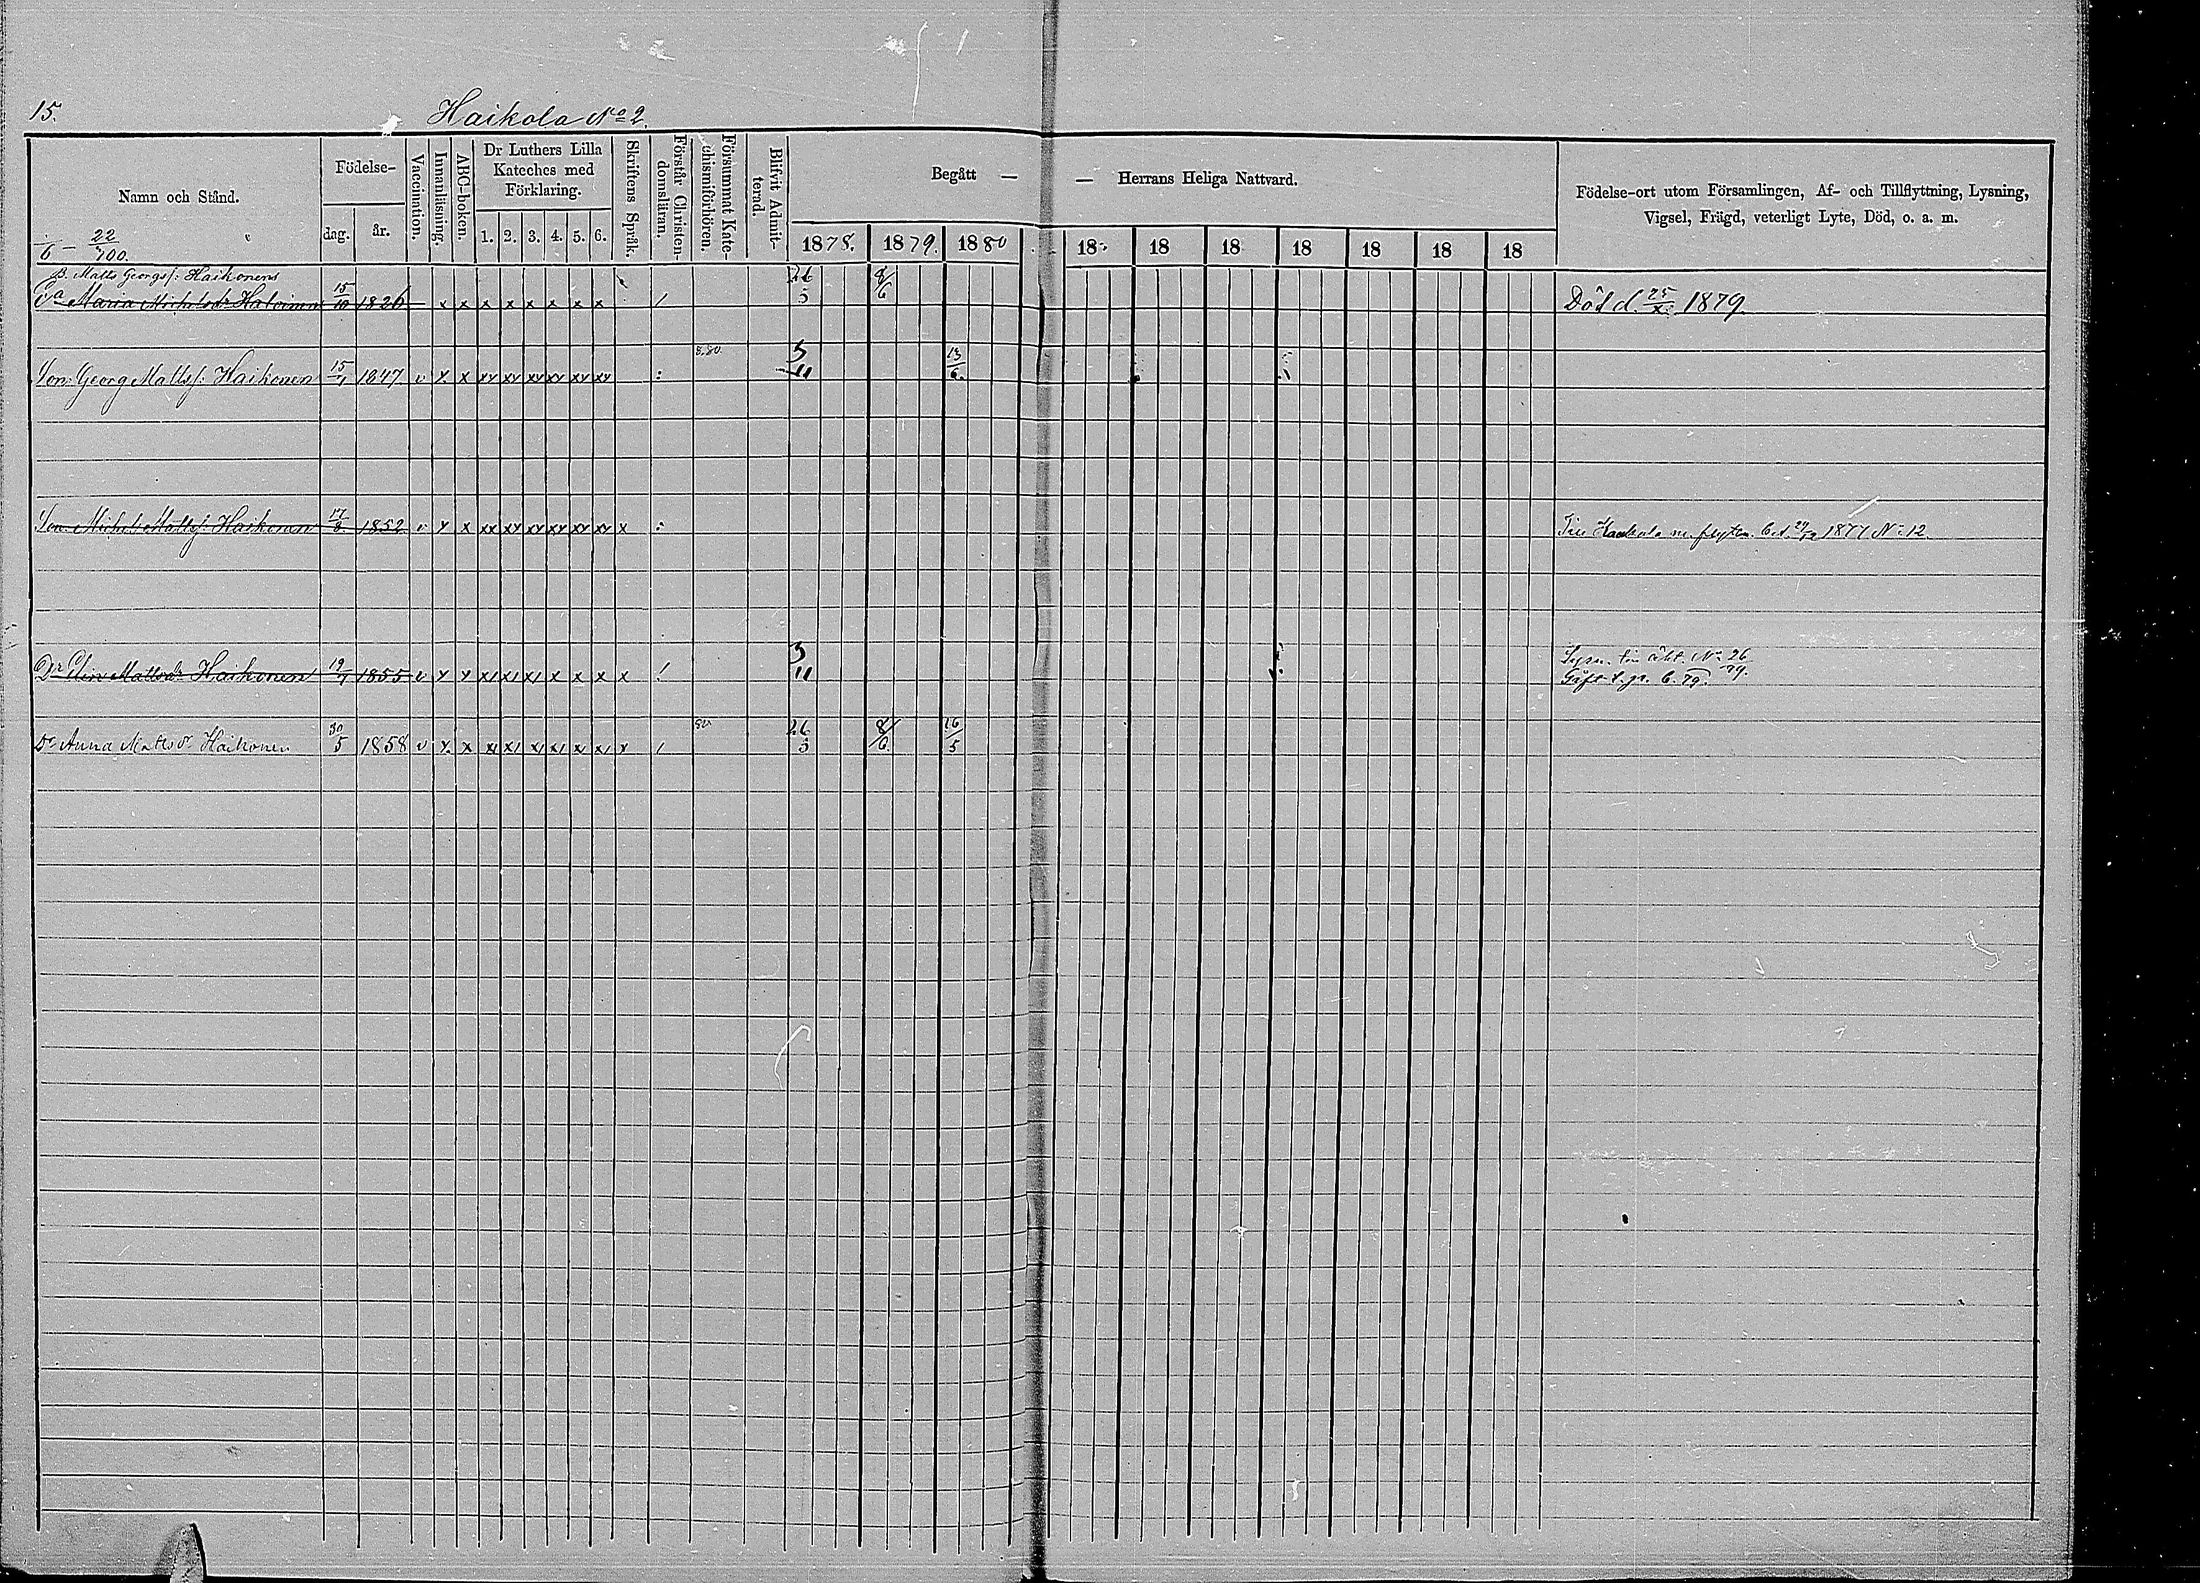 15. Haikola No 2.
Namn och Stånd.
Födelse-
dag. år.
Vaccination.
Innanläsning.
ABC-boken.
Dr Luthers Lilla
Kateches med
Förklaring.
1. 2. 3. 4. 5. 6.
Skriftens Språk.
Förstår Christen-
domsläran.
Försummat Kate-
chismiförhören.
Blifvit Admit-
terad.
Begått — — Herrans Heliga Nattvard.
1878. 1879. 1880 18 18 18 18 18 18 18
Födelse-ort utom Församlingen, Af- och Tillflyttning, Lysning,
Vigsel, Frägd, veterligt Lyte, Död, o. a. m.
22/100.
B. Matts Georgsf: Haikonens
Ea Maria Michelsdr Halvinen 15/10 1826 x x x x x x x x / 26/5 8/6 Död d. 25/X 1879.
Son: Georg Mattsf: Haikonen 15/1 1847 v x x xx xx xx xx xx xx : 8.80. 3/11 13/6.
Son Michel Mattsf: Haikonen 17/8 1852 v x x xx xx xx xx xx xx x : 1877 No 12
Dr Elin Mattsdr Haikonen 19/1 1855 v x x x1 x1 x1 x x x x ! 3/11 Lysn. No 26
79.
Dr Anna Mattsdr Haikonen 30/5 1858 v x x x1 x1 x1 x1 x1 x1 x / 80 26/5 8/6 16/5